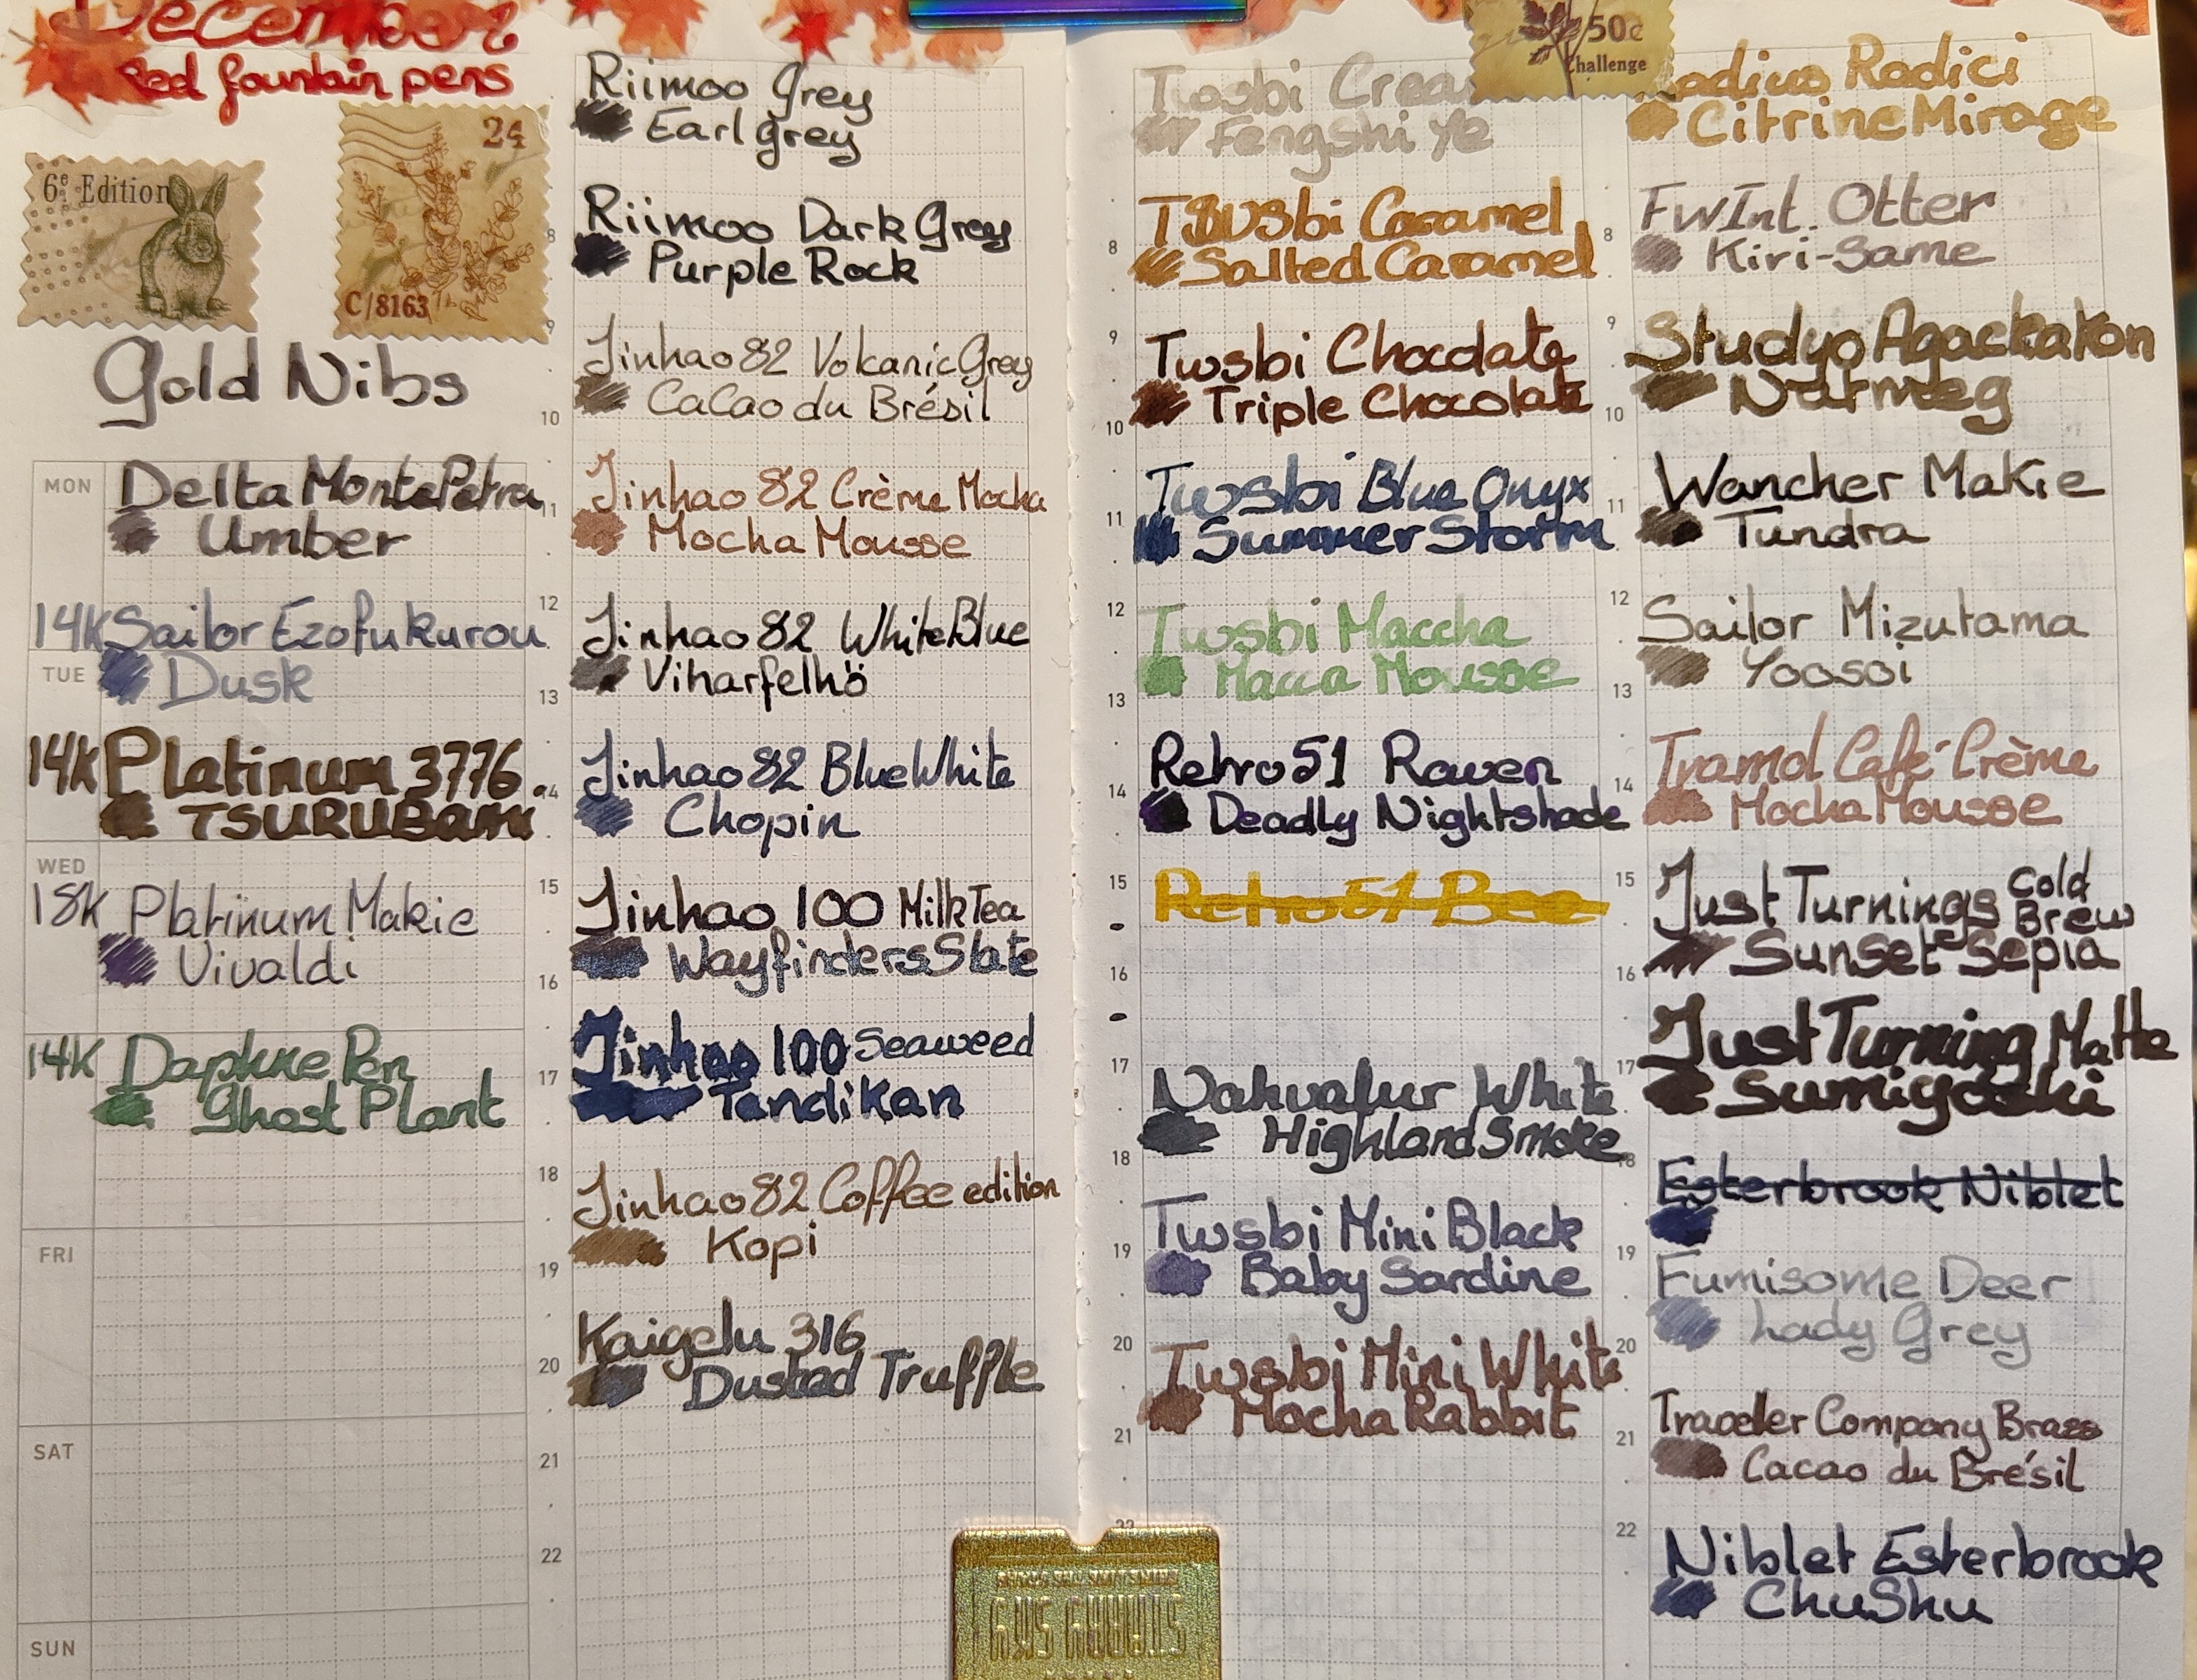 December
fountain pens
6e Edition
24
C/8163
Gold Nibs
MON
Delta Monte Petra
Umber
14K Sailor Ezofukurou
TUE
Dusk
14K Platinum 3776
TSURUBami
WED
18K Platinum Makie
Vivaldi
14K Daphne Pen
Ghost Plant
FRI
SAT
SUN
Riimoo Grey
Earl grey
8
Riimoo Dark Grey
Purple Rock
9
Jinhao 82 Volcanic Grey
CaCao du Brésil
10
Jinhao 82 Crème Mocha
11
Mocha Mousse
12
Jinhao 82 WhiteBlue
Viharfelhö
13
Jinhao 82 BlueWhite
Chopin
15
Jinhao 100 MilkTea
Wayfinders Slate
16
Jinhao 100 Seaweed
17
Tandikan
18
Jinhao 82 Coffee edition
Kopi
19
Kaigelu 316
20
Dusted Truffle
21
22
50c
Challenge
Twsbi
Fengshi Ye
8
Twsbi Caramel
Salted Caramel
9
Twsbi Chocolate
Triple Chocolate
10
Twsbi Blue Onyx
11
Summer Storm
12
Twsbi Maccha
Macca Mousse
13
Retro 51 Raven
14
Deadly Nightshade
15
Retro 51 Bee
16
17
Nahvalur White
Highland Smoke
18
Twsbi Mini Black
19
Baby Sardine
20
Twsbi Mini White
Mocha Rabbit
21
Radici
Citrine Mirage
8
FWInt. Otter
Kiri-Same
9
Studyo Agackakon
10
Nutmeg
Wancher Makie
11
Tundra
12
Sailor Mizutama
Yoosoi
13
Tramol Café Crème
14
Mocha Mousse
15
Just Turnings Cold Brew
16
Sunset Sepia
17
Just Turning Matte
Sumigoski
18
Esterbrook Niblet
19
Fumisome Deer
Lady Grey
20
Traveler Company Brass
21
Cacao du Brésil
22
Niblet Esterbrook
ChuShu